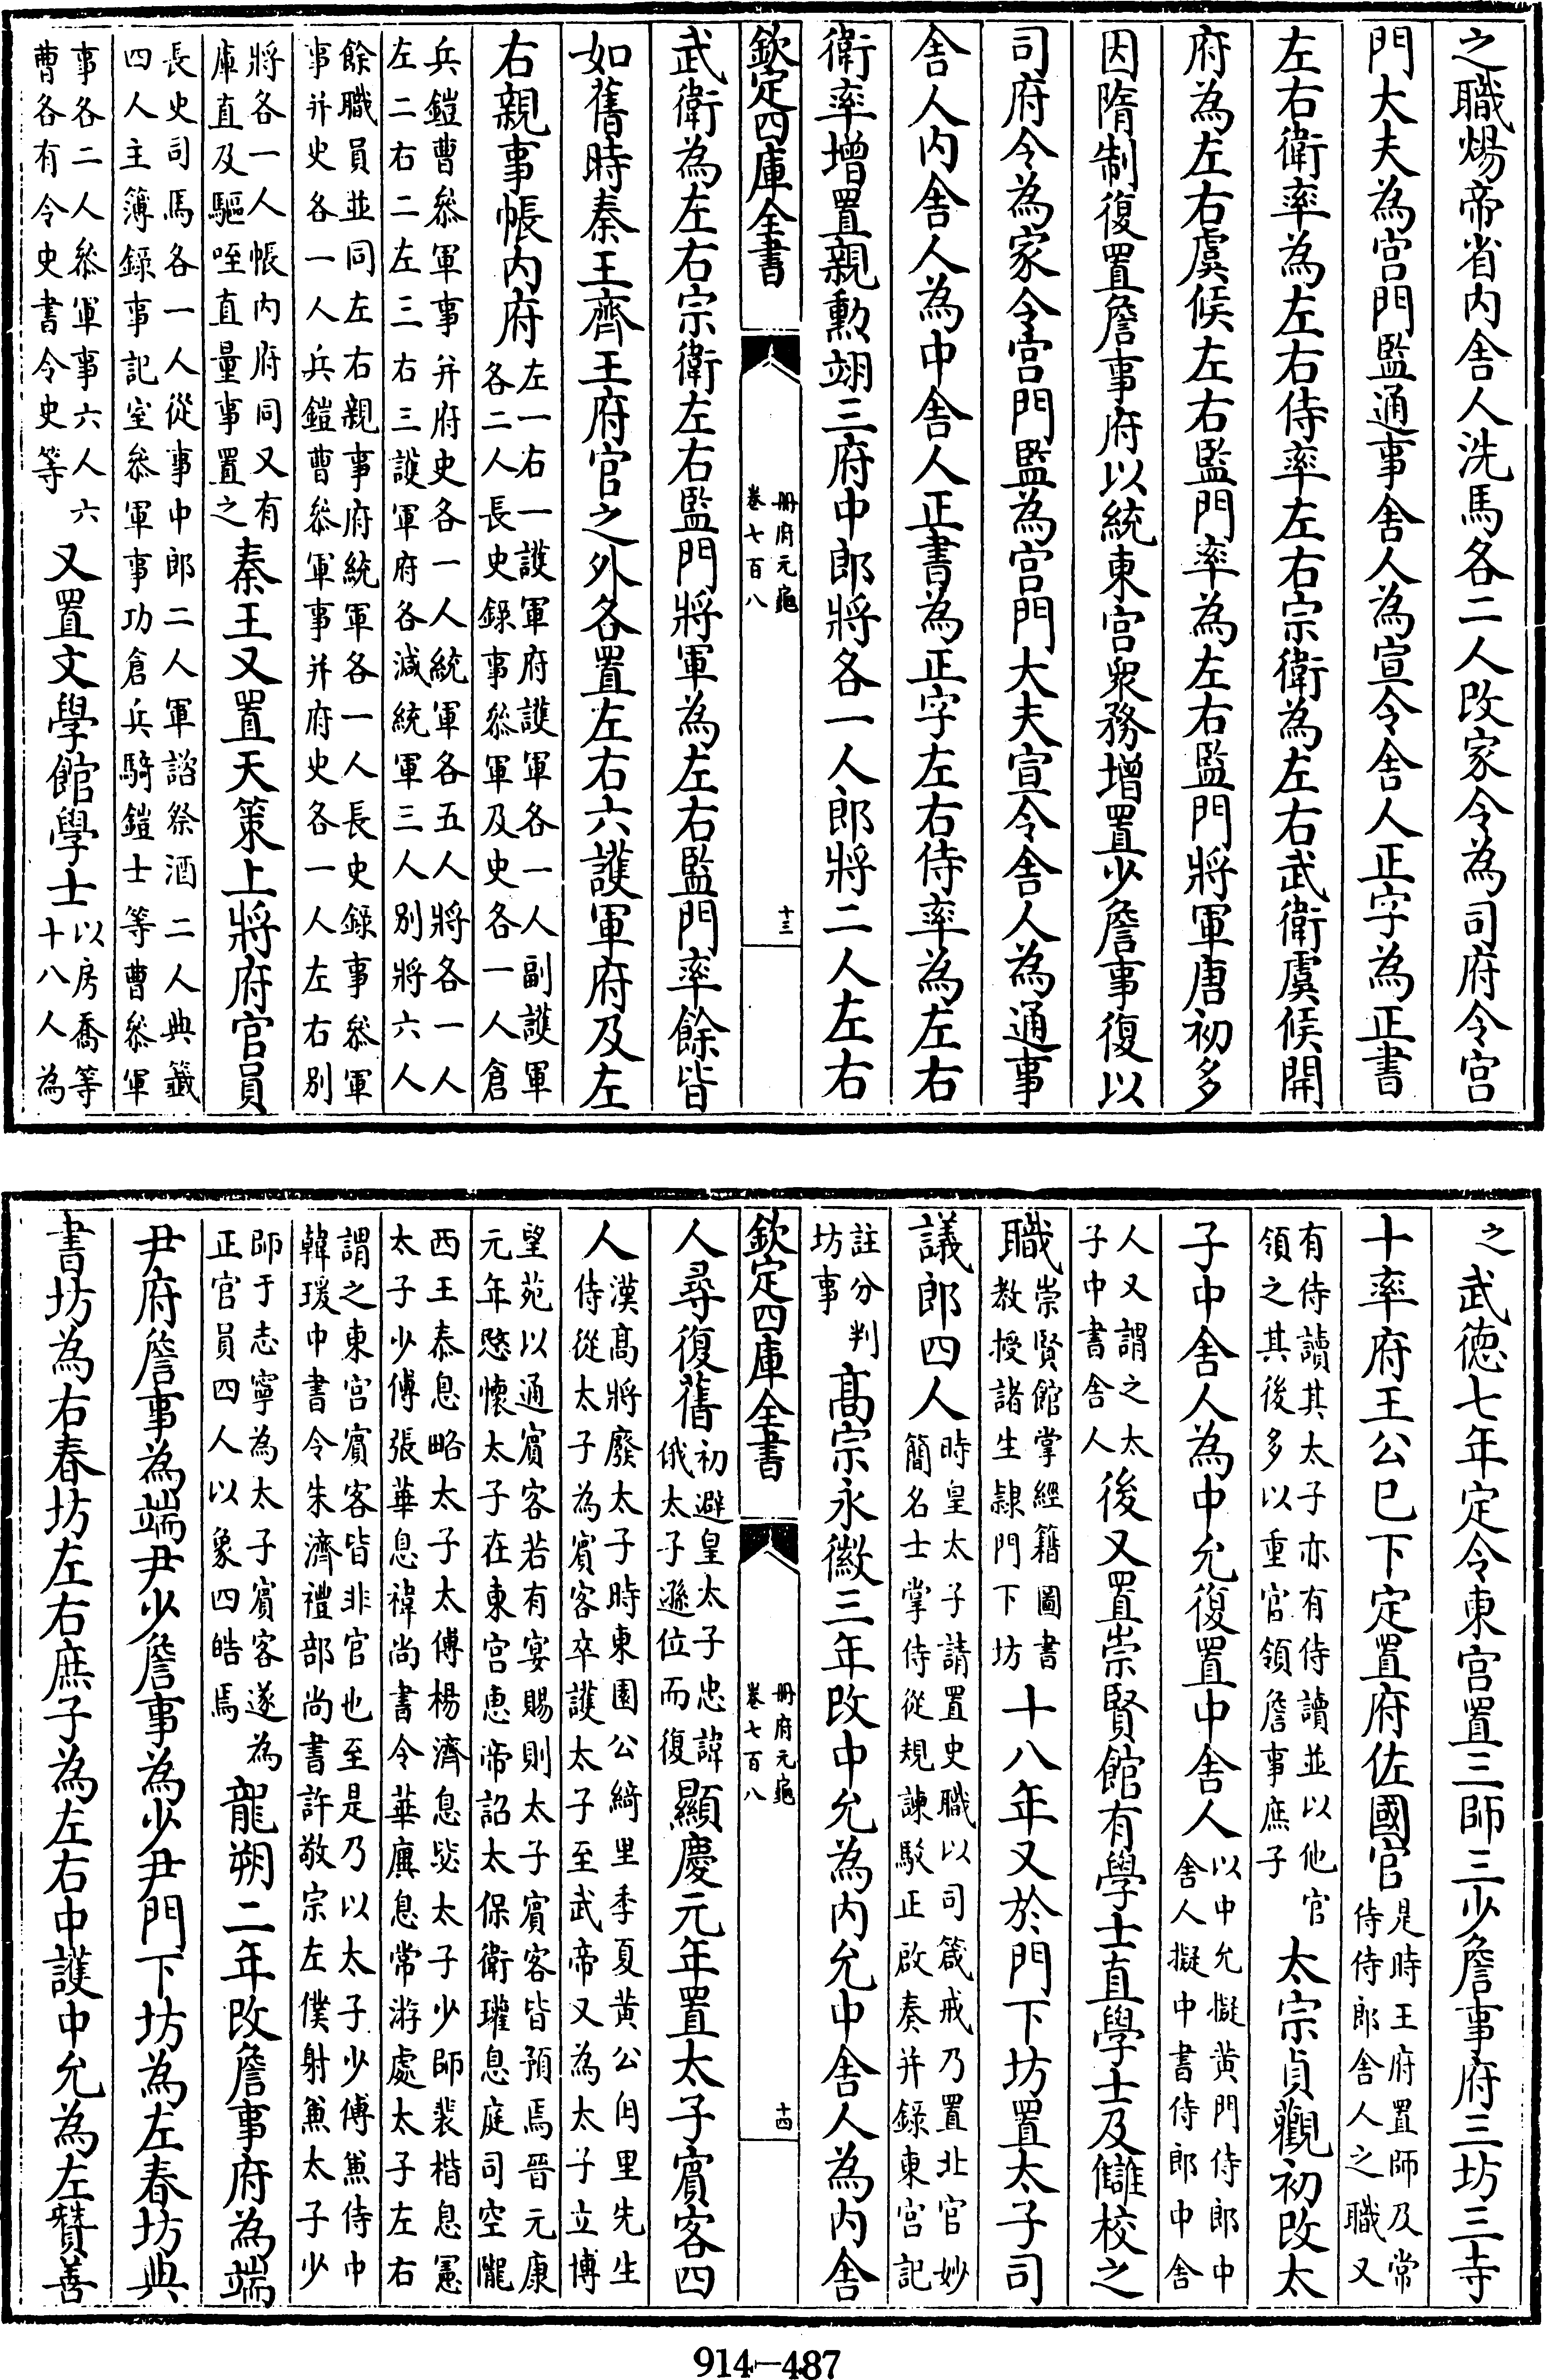 之職煬帝省内舍人洗馬各二人改家令為司府令宫
門大夫為宫門監通事舍人為宣令舍人正字為正書
左右衛率為左右侍率左右宗衛為左右武衛虞候開
府為左右虞候左右監門率為左右監門將軍唐初多
因隋制復置詹事府以統東宫衆務增置少詹事復以
司府令為家令宫門監為宫門大夫宣令舍人為通事
舍人内舍人為中舍人正書為正字左右侍率為左右
衛率增置親勲翊三府中郎將各一人郎將二人左右
欽定四庫全書
冊府元龜
卷七百八
十三
武衛為左右宗衛左右監門將軍為左右監門率餘皆
如舊時秦王齊王府官之外各置左右六護軍府及左
右親事帳内府
左一右一護軍府護軍各一人副護軍
各二人長史録事叅軍及史各一人倉
兵鎧曹叅軍事并府史各一人統軍各五人將各一人
左二右二左三右三護軍府各減統軍三人别將六人
餘職員並同左右親事府統軍各一人長史録事叅軍
事并史各一人兵鎧曹叅軍事并府史各一人左右别
將各一人帳内府同又有
庫直及驅咥直量事置之
秦王又置天策上將府官員
長史司馬各一人從事中郎二人軍諮祭酒二人典籖
四人主簿録事記室叅軍事功倉兵騎鎧士等曹叅軍
事各二人叅軍事六人六
曹各有令史書令史等
又置文學館學士
以房喬等
十八人為
之
武徳七年定令東宫置三師三少詹事府三坊三寺
十率府王公已下定置府佐國官
是時王府置師及常
侍侍郎舍人之職又
有侍讀其太子亦有侍讀並以他官
領之其後多以重官領詹事庶子
太宗貞觀初改太
子中舍人為中允復置中舍人
以中允擬黄門侍郎中
舍人擬中書侍郎中舍
人又謂之太
子中書舍人
後又置崇賢館有學士直學士及讎校之
職
崇賢館掌經籍圖書
教授諸生隷門下坊
十八年又於門下坊置太子司
議郎四人
時皇太子請置史職以司箴戒乃置北官妙
簡名士掌侍從規諫駁正啟奏并録東宫記
註分判
坊事
髙宗永徽三年改中允為内允中舍人為内舍
欽定四庫全書
冊府元龜
卷七百八
十四
人尋復舊
初避皇太子忠諱
俄太子遜位而復
顯慶元年置太子賓客四
人
漢髙將廢太子時東園公綺里季夏黄公甪里先生
侍從太子為賓客卒護太子至武帝又為太子立博
望苑以通賓客若有宴賜則太子賓客皆預焉晉元康
元年愍懷太子在東宫恵帝詔太保衛瓘息庭司空隴
西王泰息略太子太傅楊濟息毖太子少師裴楷息憲
太子少傅張華息禕尚書令華廙息常游處太子左右
謂之東宫賓客皆非官也至是乃以太子少傅兼侍中
韓瑗中書令來濟禮部尚書許敬宗左僕射兼太子少
師于志寧為太子賓客遂為
正官員四人以象四皓焉
龍朔二年改詹事府為端
尹府詹事為端尹少詹事為少尹門下坊為左春坊典
書坊為右春坊左右庶子為左右中護中允為左贊善
914—487